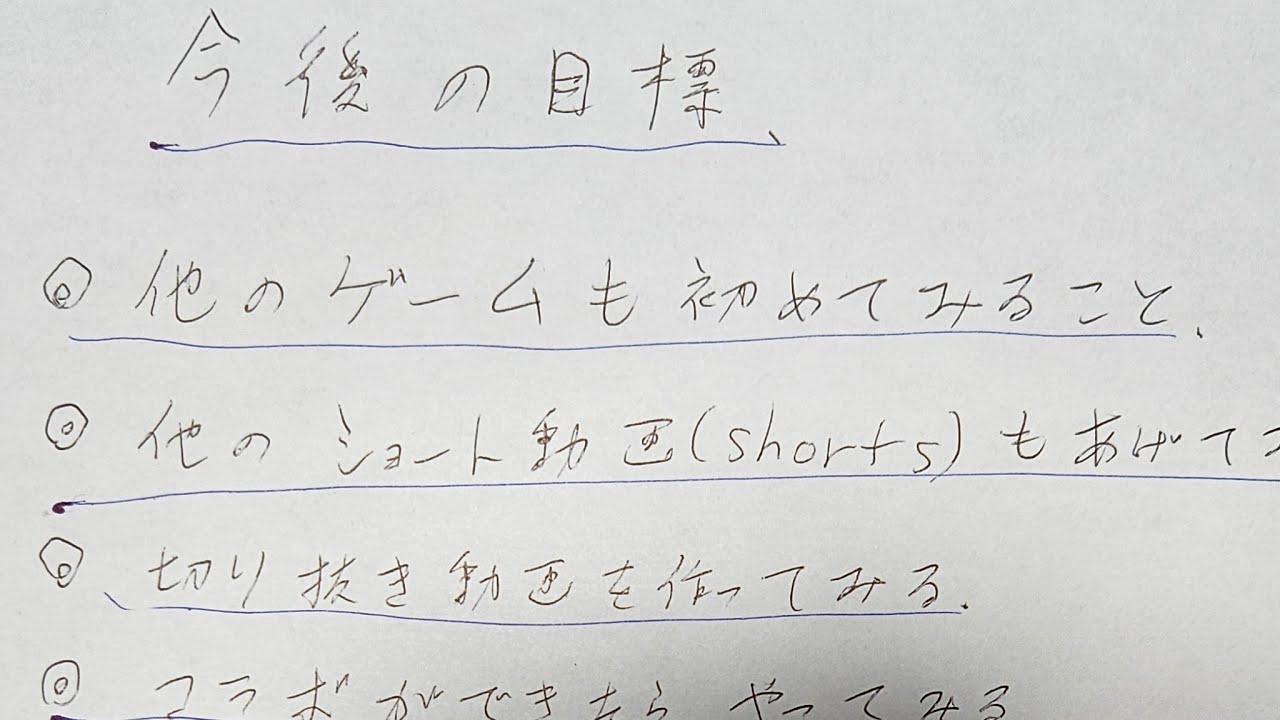 今後の目標
◎ 他のゲームも初めてみること、
◎ 他のショート動画(shorts)もあげて
◎ 切り抜き動画を作ってみる.
◎ コラボができたらやってみる